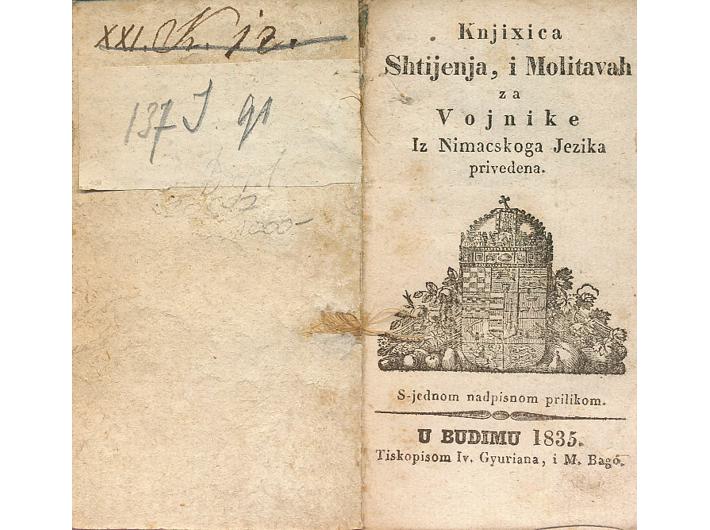 XXI.
137 J 91
1000-
Knjixica
Shtijenja, i Molitavah
za
Vojnike
Iz Nimacskoga Jezika
privedena.
S-jednom nadpisnom prilikom.
U BUDIMU 1835.
Tiskopisom Iv. Gyuriana, i M. Bagó.